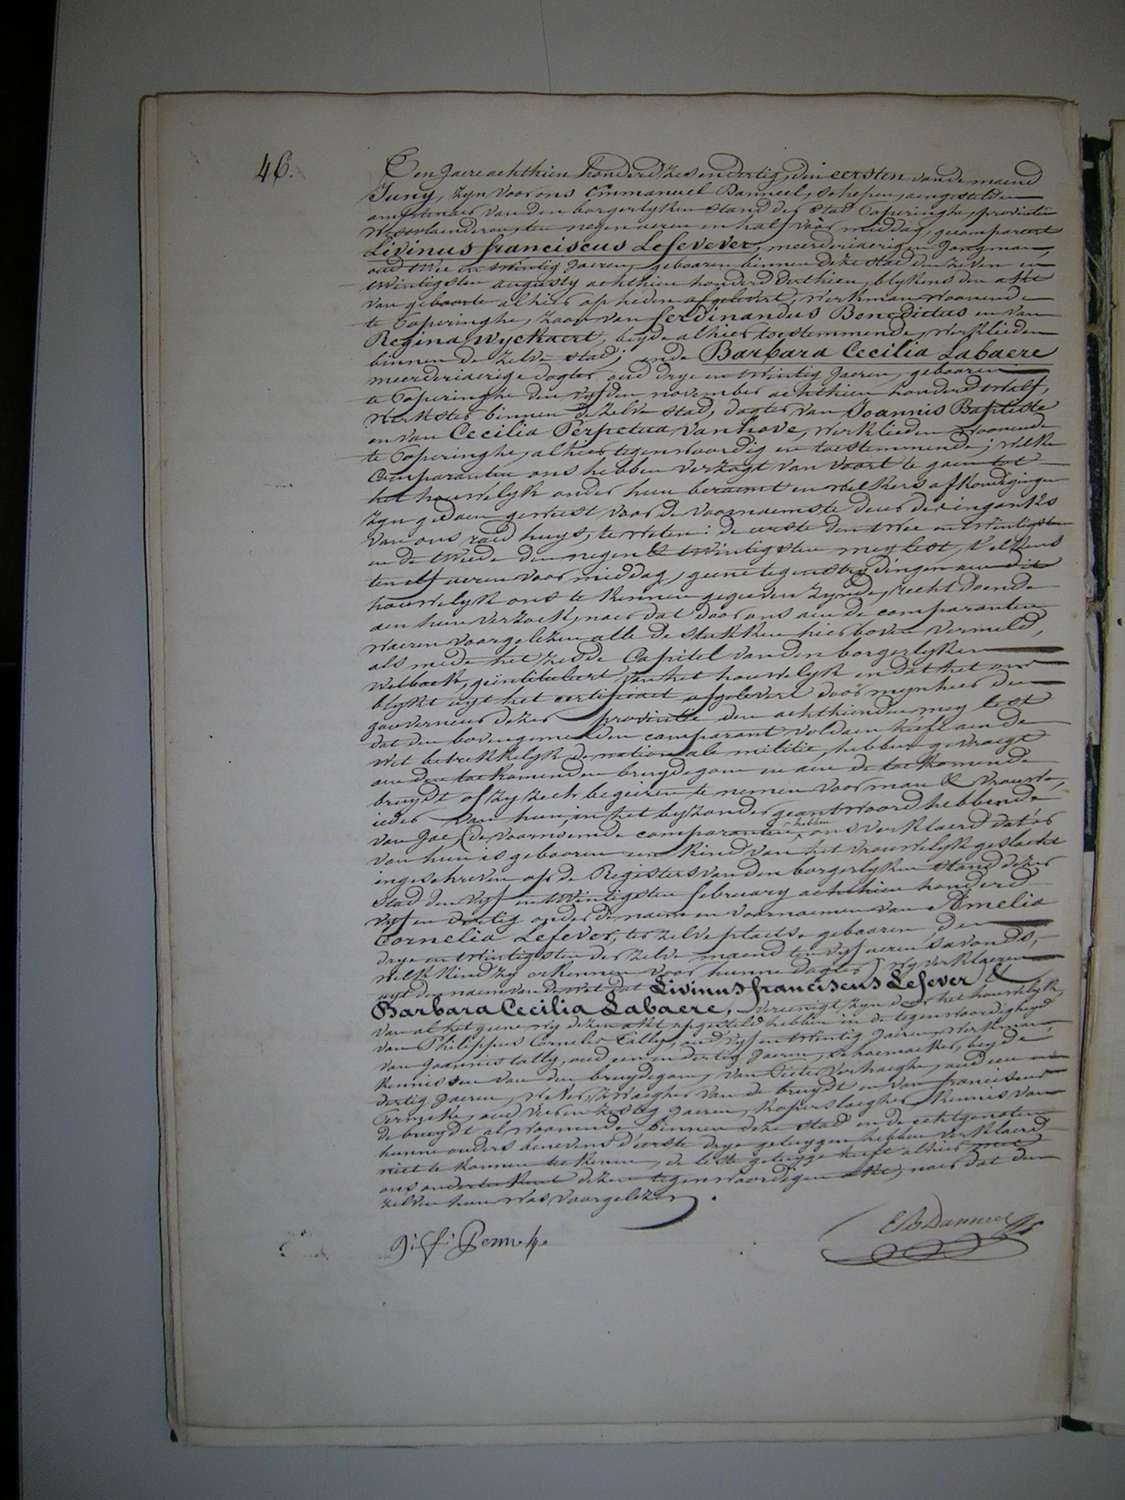 46.
Den Jaere achthien honderd zes en dertig, den eersten van de maend
Juny, zyn voor ons Emmanuel Danneel, schepen, aengestelden
amptenaer van den borgerlyken stand der stad Poperinghe, provincie
Westvlaenderen, ten negen ueren en half voor middag, gecompareert
Livinus franciscus Lefevever, meerderjaerigen Jongman,
oud twee en twintig Jaeren, gebooren binnen deze stad den zeven en
twintigsten augusty achthien honderd derthien, blykens den akte
van geboorte alhier op heden afgelevert, werkman woonende
te Poperinghe, zoon van ferdinandus Benedictus en van
Regina Wyckaert, beyde alhier toestemmende, werklieden
binnen de zelve stad; ende Barbara Cecilia Labaere
meerderjaerige dogter, oud drye en twintig Jaeren, gebooren
te Poperinghe den vyfden november achthien honderd twalf,
werkster binnen dezelve stad, dogter van Joannis Baptiste
en van Cecilia Perpetua Vanhove, werklieden woonende
te Poperinghe, alhier tegenwoordig en toestemmende; welke
Comparanten ons hebben verzogt van voort te gaen tot
het houwelyk onder hun beraemt en welkers afkondigingen
zyn gedaen geweest voor de voornaemste deur der ingank
van ons raed huys, te weten: de eerste den twee en twintigsten
en de tweede den negen & twintigsten mey lest, telkens
ten elf ueren voor middag, geene tegenstrydingen aen dit
houwelyk ons te kennen gegeven zynde, recht doende
aen hun verzoek, naer dat door ons aen de comparanten
waeren voorgelezen alle de stukken hier boven vermeld,
als mede het zesde Capitel van den borgerlyken
wetboek, geintituleert, van het houwelyk en dat het ons
blykt uyt het certificaet afgelevert door mynheer den
gouverneur dezer provincie den achthienden mey lest
dat den bovengemelden comparant voldaen heeft aen de
wet betrekkelyk de nationale militie, hebben gevraegt
aen den toekomenden bruydegom en aen de toekomende
bruydt of zy zich begeiren te nemen voor man & vrouwe,
ieder van hun in het byzonder geantwoord hebbende
van Jae (de voornoemde comparanten hebben ons verklaerd dat er
van hun is gebooren een kind van het vrouwelyk geslacht
ingeschreven op de Registers van den borgerlyken stand dezer
stad den vyf en twintigsten february achthien honderd
vyf en dertig onder de naem en voornaemen van Amelia
Cornelia Lefever, ter zelve plaetse gebooren den
drye en twintigsten der zelve maend ten vyf ueren s avonds,
welk kind zy erkennen voor hunne dogter) wy verklaeren
uyt den naem van de wet dat Livinus franciscus Lefever &
Barbara Cecilia Labaere, vereenigt zyn door het houwelyk,
van al het geene wy dezen akt opgesteld hebben in de tegenwoordigheyd
van Philippus Cornelis Lally, oud vyf en twintig Jaeren, werkman,
van Joannis Lally, oud een en dertig Jaeren, schoemaeker, beyde
kennissen van den bruydegom, van Pieter Verhaeghe, oud een en
dertig Jaeren, wever, zwaegher van de bruydt en van franciscus
oud vier en zestig Jaeren, koperslaegher, kennis van
de bruydt al woonende binnen deze stad en de echtgenoten
hunne ouders benevens d'eerste drye getuygen hebben verklaerd
niet te konnen teekenen, de leste getuyge heeft alhier met
ons onderteekent dezen tegenwoordigen akte, naer dat den
zelven hun was voorgelezen.
E. Danneel